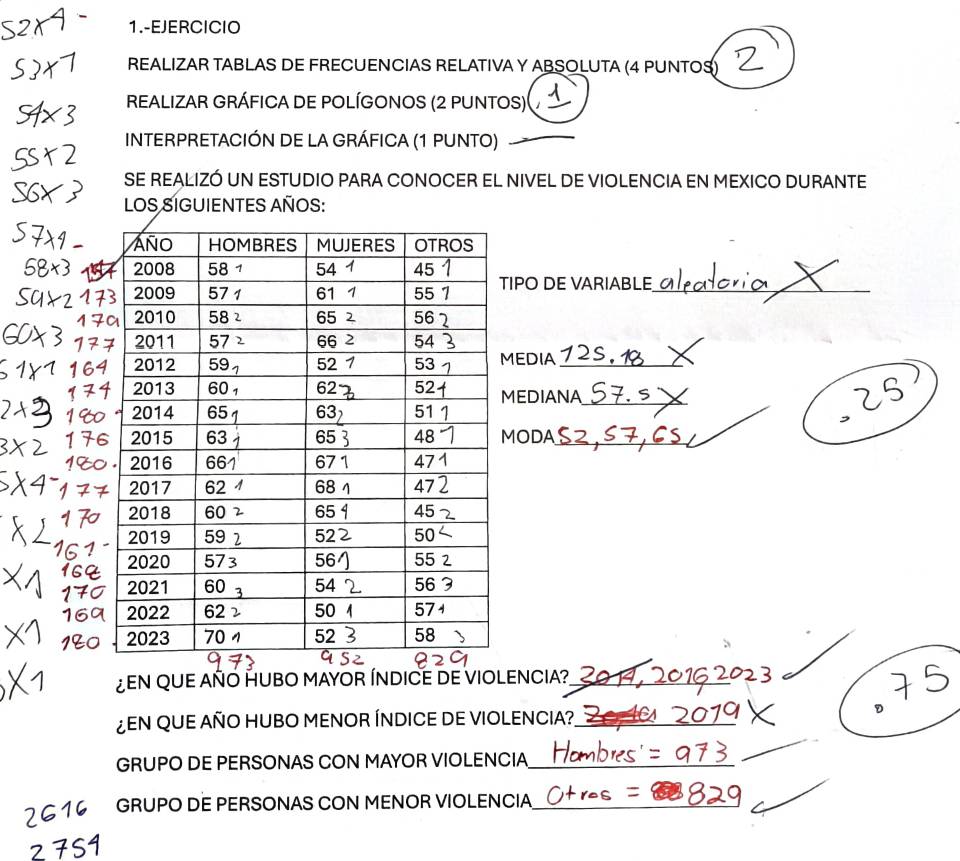 52x4 - 1.-EJERCICIO
53x1 REALIZAR TABLAS DE FRECUENCIAS RELATIVA Y ABSOLUTA (4 PUNTOS) 2
54x3 REALIZAR GRÁFICA DE POLÍGONOS (2 PUNTOS) 1
55x2 INTERPRETACIÓN DE LA GRÁFICA (1 PUNTO)
56x3 SE REALIZÓ UN ESTUDIO PARA CONOCER EL NIVEL DE VIOLENCIA EN MEXICO DURANTE
LOS SIGUIENTES AÑOS:
57x4 - AÑO HOMBRES MUJERES OTROS
58x3 2008 58 1 54 1 45 1
TIPO DE VARIABLE aleatoria X
59x2 173 2009 57 1 61 1 55 1
179 2010 58 2 65 2 56 2
60x3 177 2011 57 2 66 2 54 3
MEDIA 125.18 X
61x1 164 2012 59 1 52 1 53 1
174 2013 60 1 62 2 52 4
MEDIANA 57.5 X
.25
2x3 180 2014 65 1 63 2 51 1
3x2 176 2015 63 1 65 3 48 1
MODA 52, 57, 65
180 2016 66 1 67 1 47 1
5x4 - 177 2017 62 1 68 1 47 2
170 2018 60 2 65 4 45 2
x2 161 - 2019 59 2 52 2 50
168 2020 57 3 56 1 55 2
x1 170 2021 60 3 54 2 56 3
169 2022 62 2 50 1 57 4
x1 180 2023 70 1 52 3 58 3
973 952 829
x1 ¿EN QUE AÑO HUBO MAYOR ÍNDICE DE VIOLENCIA? 2014, 2016 2023
.75
¿EN QUE AÑO HUBO MENOR ÍNDICE DE VIOLENCIA? 2019 X
GRUPO DE PERSONAS CON MAYOR VIOLENCIA Hombres = 973
GRUPO DE PERSONAS CON MENOR VIOLENCIA Otros = 829
2616
2754